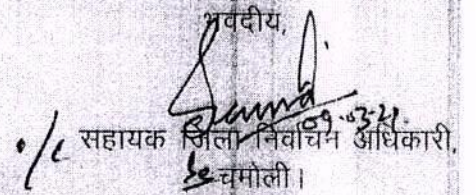 भवदीय,
09.03.21.
सहायक जिला निर्वाचन अधिकारी,
चमोली।